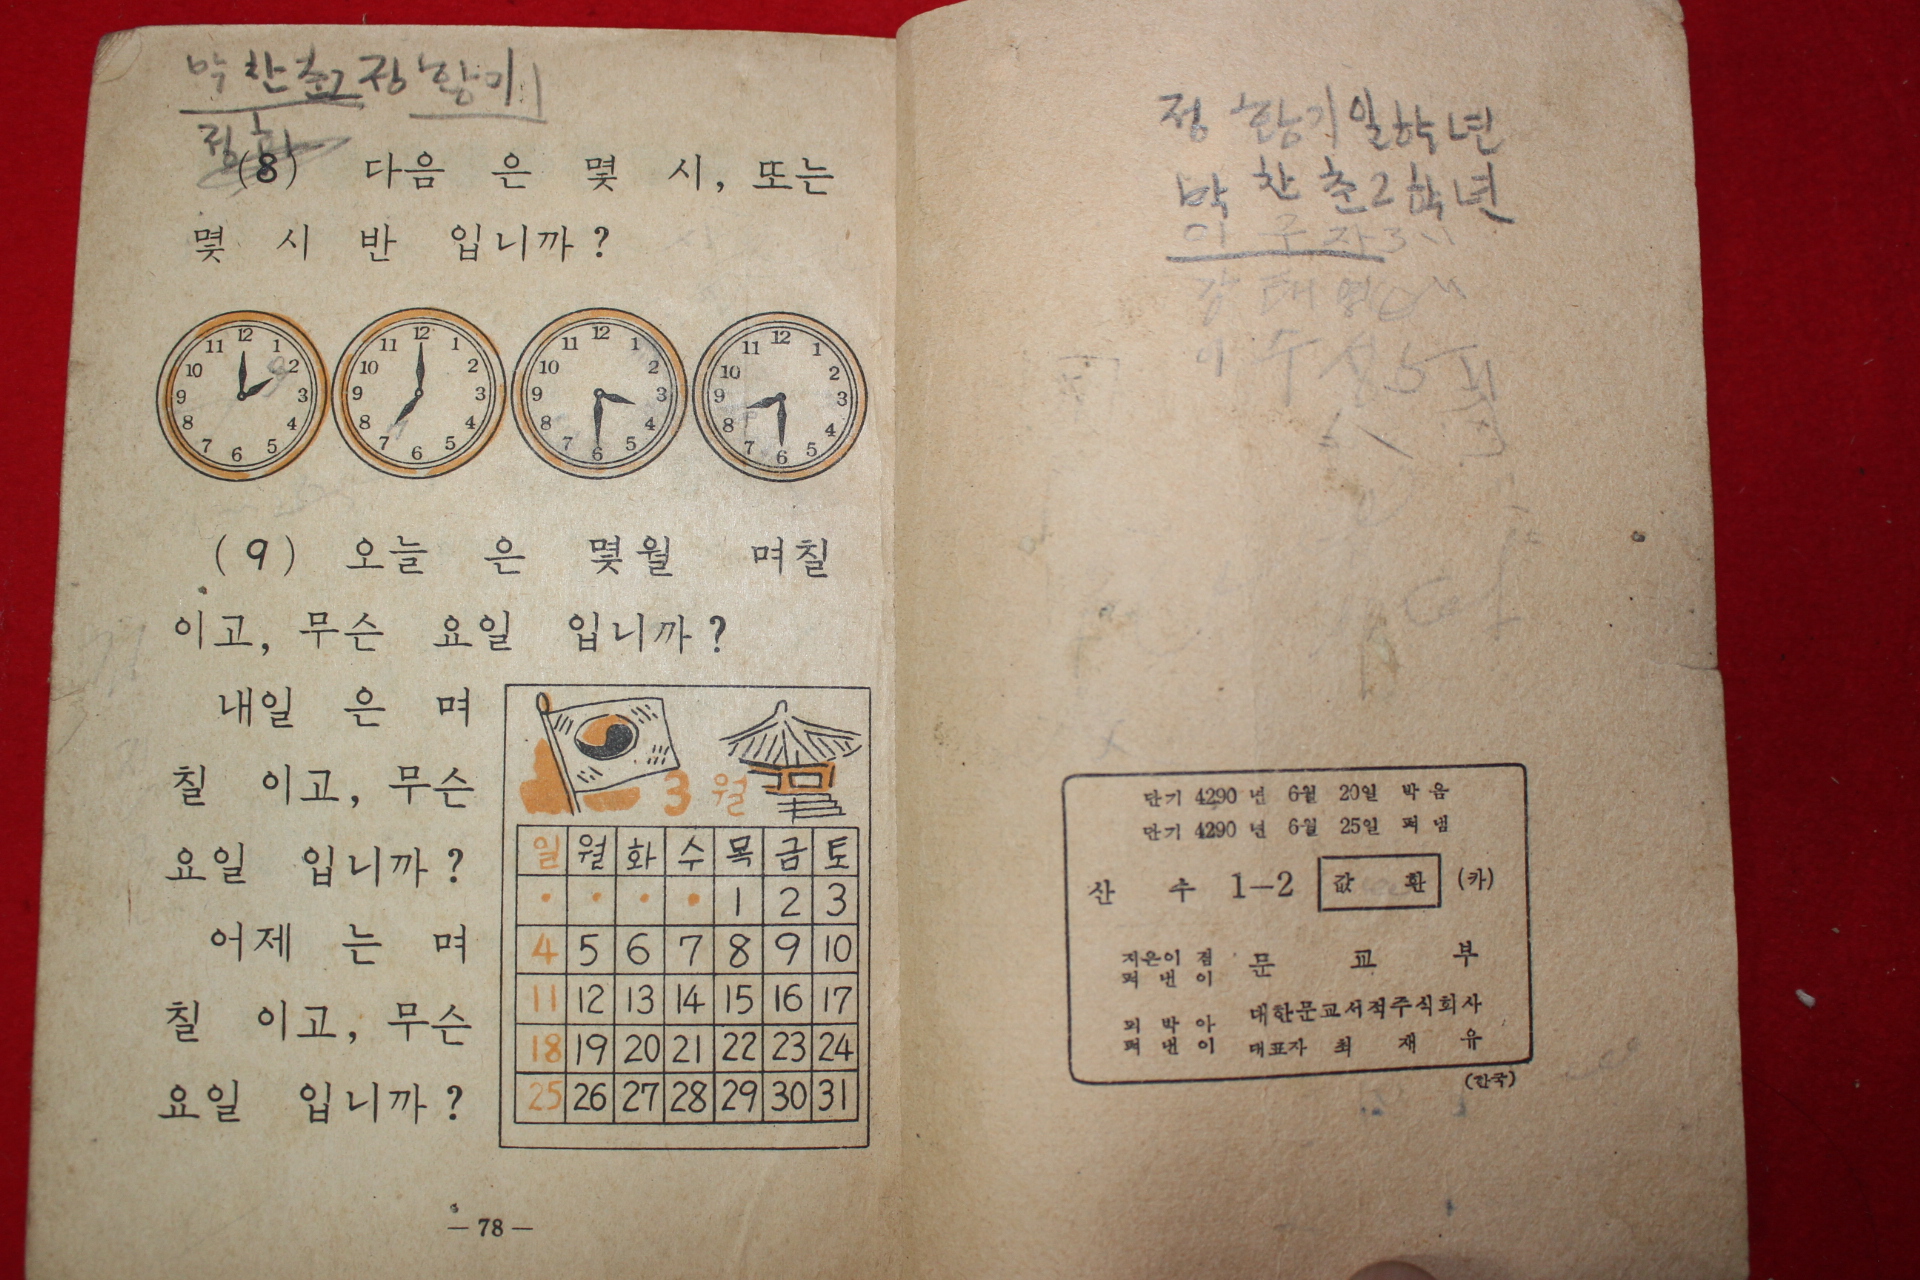 박 찬 춘 2 정 황기
정 황
(8) 다음 은 몇 시, 또는
몇 시 반 입니까?
12 1 2 3 4 5 6 7 8 9 10 11
12 1 2 3 4 5 6 7 8 9 10 11
12 2 3 6 7 8 9 10 11
12 1 2 3 4 5 6 7 8 9 10 11
(9) 오늘 은 몇월 며칠
이고, 무슨 요일 입니까?
내일 은 며
칠 이고, 무슨
요일 입니까?
어제 는 며
칠 이고, 무슨
요일 입니까?
3 월
일 월 화 수 목 금 토
1 2 3
4 5 6 7 8 9 10
11 12 13 14 15 16 17
18 19 20 21 22 23 24
25 26 27 28 29 30 31
— 78 —
정 황기 일학년
박 찬 춘 2학년
단기 4290 년 6월 20일 박음
단기 4290 년 6월 25일 펴냄
산 수 1—2 값 환 (카)
지은이 겸
펴 낸 이 문 교 부
박 아
펴 낸 이 대한문교서적주식회사
대표자 최 재 유
(한국)